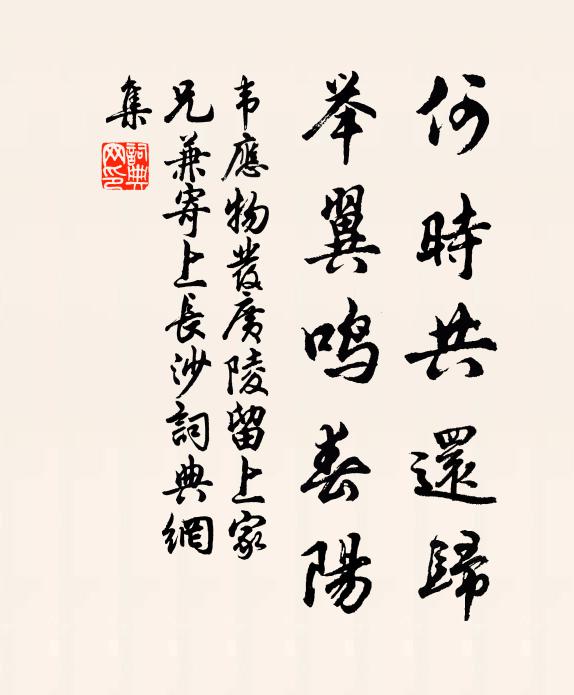 何時共還歸
举翼鸣春陽
韦應物發廣陵留上家
兄兼寄上長沙詞典網
集
詞典
网印